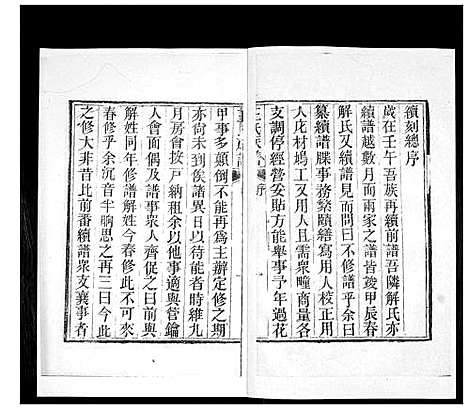 續刻總序
歲在壬午吾族再續前譜吾隣解氏亦
續譜越數月而兩家之譜皆竣甲辰春
解氏又續譜見而問曰不修譜乎余曰
纂續譜牒事務繁頤繕寫用人校正用
人庀材塢工又用人且需眾曈商量籌
支調停經營妥貼方能舉事予年過花
甲事多顛倒不能再為主辦定修之期
亦尚未到俟諸異日以待能者時維九
月房會按戶納租余以他事適與管鑰
人會面偶及譜事眾人齊促之曰前與
解姓同年修譜解姓今春修此不可來
春修乎余沉音半晌思之再三曰今此
之修大非昔比前番續譜眾支襄事者